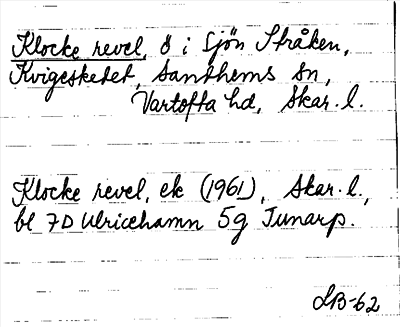 Klocke revel, ö i sjön Stråken,
Kvigesketet, Sandhems sn,
Vartofta hd, Skar. l.
Klocke revel, ek (1961), Skar. l.,
bl 7D Ulricehamn 5g Tunarp.
LB-62